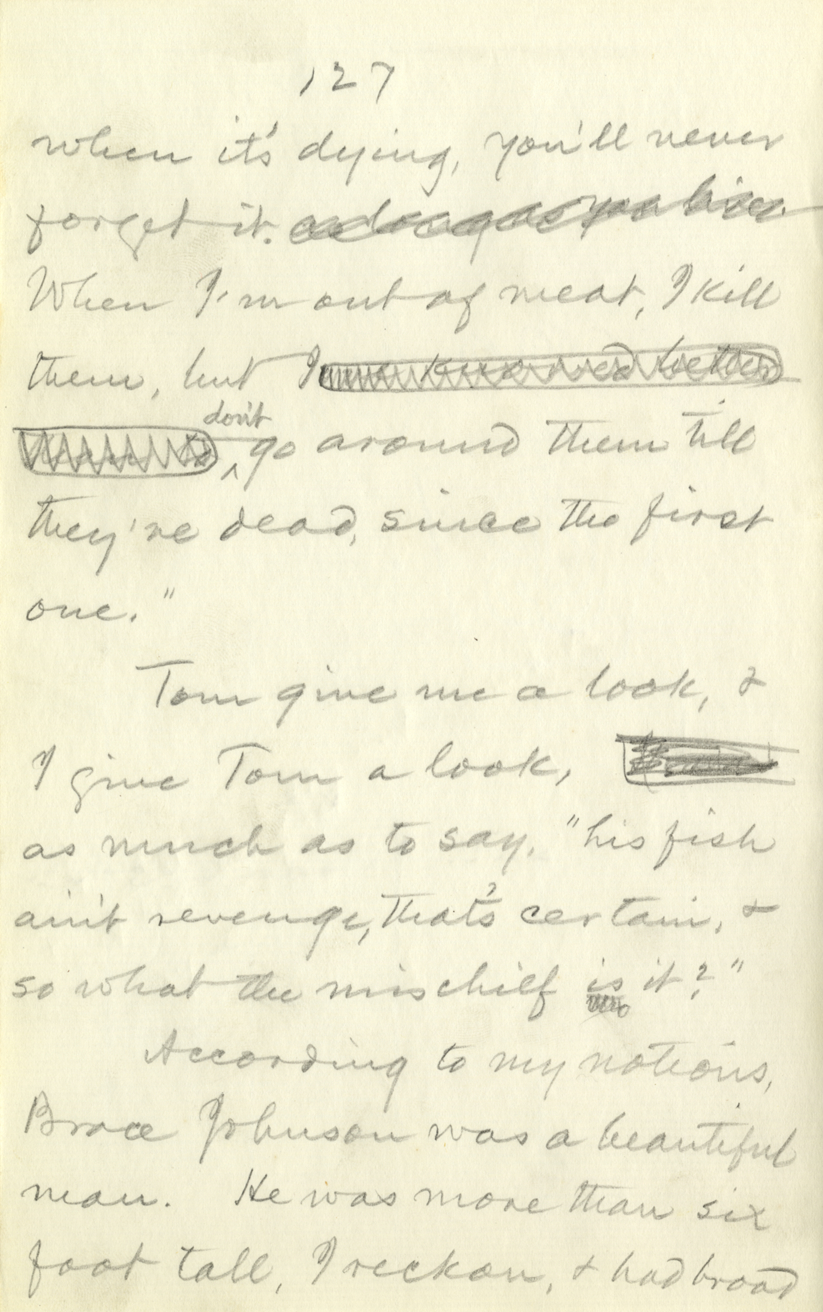 127
when it's dying, you'll never
forget it. as long as you live.
When I'm out of meat, I kill
them, but I
don't
go around them till
they're dead, since the first
one."
Tom give me a look, &
I give Tom a look,
as much as to say, "his fish
ain't revenge, that's certain, &
so what the mischief is it?"
According to my notions,
Brace Johnson was a beautiful
man. He was more than six
foot tall, I reckon, & had broad